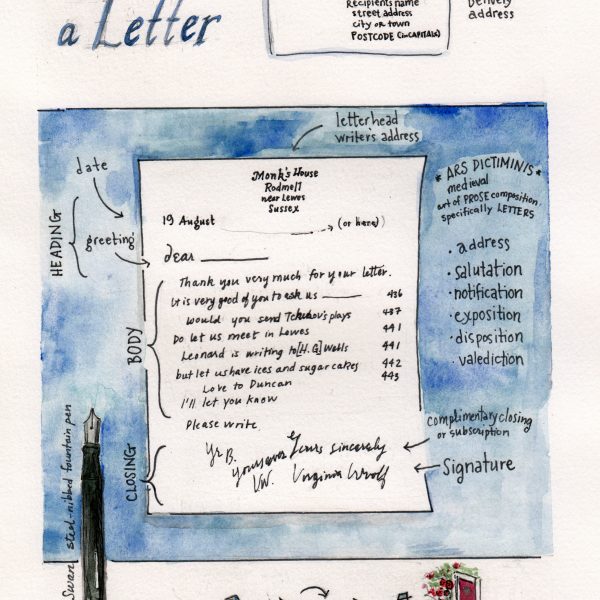 a Letter
Recipients name
street address
city or town
POSTCODE (in CAPITALS)
Delivery
address
letterhead
writer's address
date
HEADING
greeting
Monk's House
Rodmell
near Lewes
Sussex
19 August
(or here)
dear
* ARS DICTIMINIS *
medieval
art of PROSE composition
specifically LETTERS
• address
• salutation
• notification
• exposition
• disposition
• valediction
BODY
Thank you very much for your letter.
it is very good of you to ask us 436
would you send Tchehov's plays 437
Do let us meet in Lewes 441
Leonard is writing to [H.G] Wells 441
but let us have ices and sugar cakes 442
Love to Duncan 443
I'll let you know
Please write
CLOSING
Yr B.
Yours ever Yours sincerely
V.W. Virginia Woolf
complimentary closing
or subscription
Signature
Swan steel-nibbed fountain pen